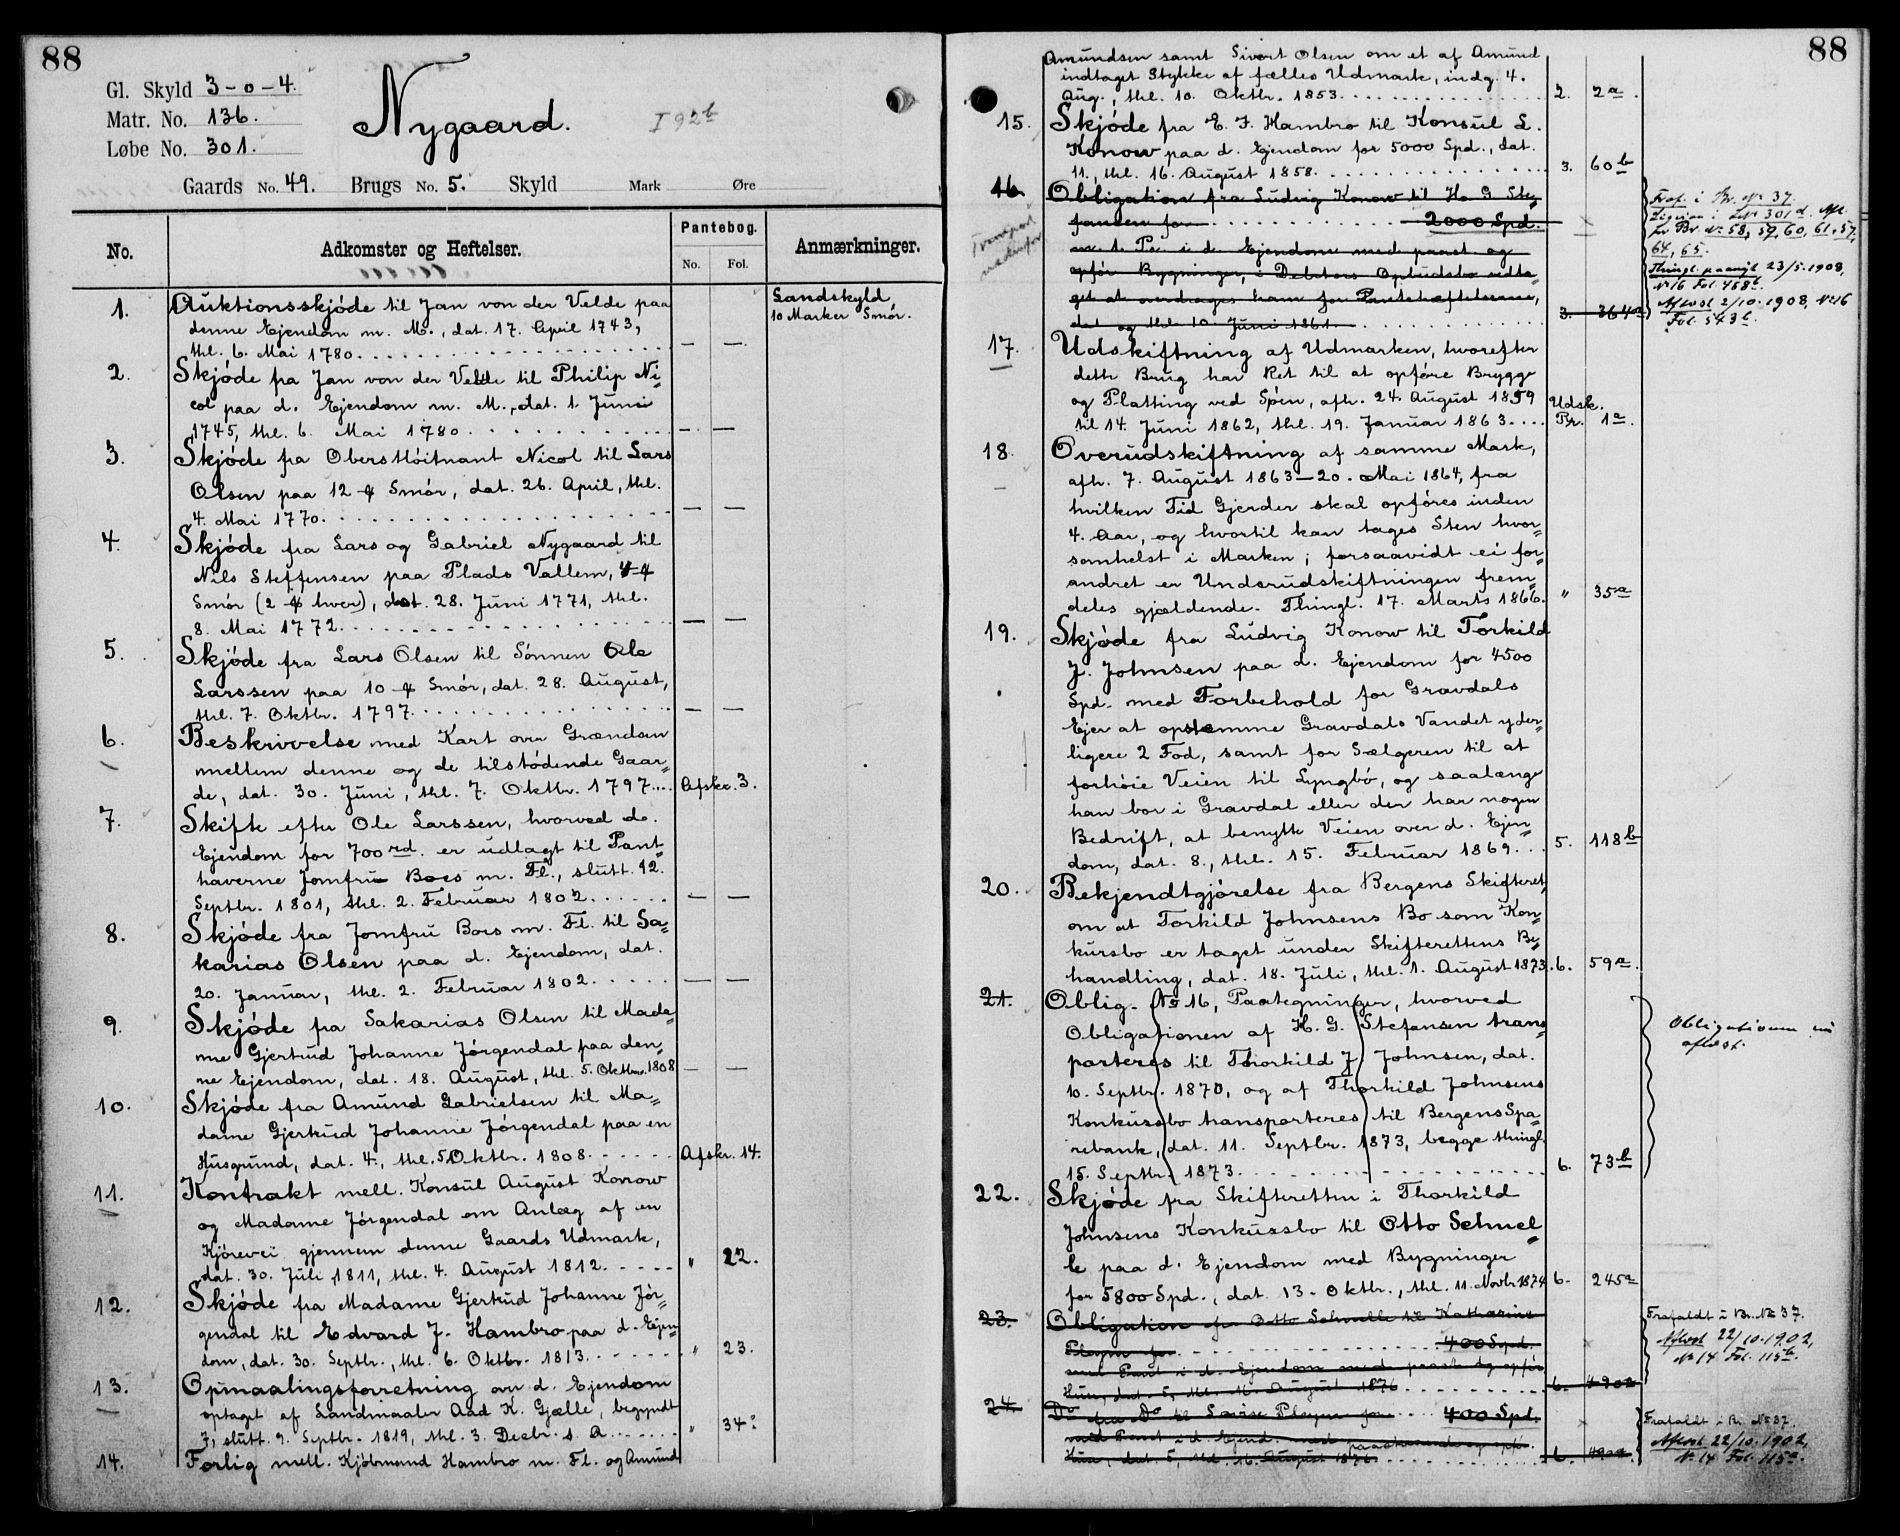 88
Gl. Skyld 3-0-4.
Matr. No. 136.
Løbe No. 301.
Nygaard.
I 92b
Gaards No. 49. Brugs No. 5. Skyld Mark Øre
No. Adkomster og Heftelser. Pantebog. No. Fol. Anmærkninger.
1. Auktionsskjöde til Jan von der Velde paa
denne Ejendom m. M., dat. 17. April 1743,
thl. 6. Mai 1780. — —
Landskyld
10 Marker Smör.
2. Skjöde fra Jan von der Velde til Philip Ni=
col paa d. Ejendom m. M., dat. 1. Juni
1745, thl. 6. Mai 1780. — —
3. Skjöde fra Oberstlöitnant Nicol til Lars
Olsen paa 12 Smör, dat. 26. April, thl.
4. Mai 1770. — —
4. Skjöde fra Lars og Gabriel Nygaard til
Nils Steffensen paa Plads Vallem, 4
Smör (2 hver), dat. 28. Juni 1771, thl.
8. Mai 1772. — —
5. Skjöde fra Lars Olsen til Sönnen Ole
Larssen paa 10 Smör, dat. 28. August,
thl. 7. Oktbr. 1797. — —
6. Beskrivelse med Kart over Grændsen
mellem denne og de tilstödende Gaar=
de, dat. 30. Juni, thl. 7. Oktbr. 1797. Afskr. 3.
7. Skifte efter Ole Larssen, hvorved d.
Ejendom for 700 rd. er udlagt til Pant=
haverne Jomfru Boes m. Fl., slutt. 12.
Septbr. 1801, thl. 2. Februar 1802. — —
8. Skjöde fra Jomfru Boes m. Fl. til Sa=
karias Olsen paa d. Ejendom, dat.
20. Januar, thl. 2. Februar 1802. — —
9. Skjöde fra Sakarias Olsen til Mada=
me Gjertrud Johanne Jörgendal paa den=
ne Ejendom, dat. 18. August, thl. 5. Oktbr. 1808 — —
10. Skjöde fra Amund Gabrielsen til Ma=
dame Gjertrud Johanne Jörgendal paa en
Husgrund, dat. 4., thl. 5. Oktbr. 1808. Afskr. 14.
11. Kontrakt mell. Konsul August Konow
og Madame Jörgendal om Anlæg af en
Kjörevei gjennem denne Gaards Udmark,
dat. 30. Juli 1811, thl. 4. August 1812. " 22.
12. Skjöde fra Madame Gjertrud Johanne Jör=
gendal til Edvard J. Hambro paa d. Ejen=
dom, dat. 30. Septbr., thl. 6. Oktbr. 1813. " 23.
13. Opmaalingsforretning over d. Ejendom
optaget af Landmaaler Aad K. Gjelle, begyndt
7, slutt. 9. Septbr. 1819, thl. 3. Decbr. s. A. " 34
14. Forlig mell. Kjöbmand Hambro m. Fl. og Amund
88
Amundsen samt Sivert Olsen om et af Amund
indtaget Stykke af fælles Udmark, indg. 4.
Aug., thl. 10. Oktbr. 1853. 2. 2a.
15. Skjöde fra E. J. Hambro til Konsul L.
Konow paa d. Ejendom for 5000 Spd., dat.
11., thl. 16. August 1858. 3. 60b
16. Obligation fra Ludvig Konow til H. G. Ste=
fansen for 2000 Spd.
m. 1. Pr. i d. Ejendom med paast. og
opför. Bygninger, i Debitors Opbudsbo vedta=
get at overdrages ham for Pantehæftelserne,
dat. og thl. 10. Juni 1861. 3. 364a
Fraf. i Br. No 37.
Ligesaa i LNo 301d. Afl.
for Br No 58, 59, 60, 61, 57,
64, 65.
Thingl. paaany 23/5 1908,
No 16 Fol. 458b.
Aflæst 2/10. 1908, No 16
Fol. 543b.
17. Udskiftning af Udmarken, hvorefter
dette Brug har Ret til at opföre Brygge
og Platting ved Söen, afh. 24. August 1859
til 14. Juni 1862, thl. 19. Januar 1863. Udsk. Pr. 1a.
18. Overudskiftning af samme Mark,
afh. 7. August 1863—20. Mai 1864, fra
hvilken Tid Gjerder skal opföres inden
4. Aar, og hvortil kan tages Sten hvor=
somhelst i Marken; forsaavidt ei for=
andret er Underudskiftningen frem=
deles gjældende. Thingl. 17. Marts 1866. " 35a
19. Skjöde fra Ludvig Konow til Torkild
J. Johnsen paa d. Ejendom for 4500
Spd. med Forbehold for Gravdals
Ejer at opstemme Gravdals Vandet yder=
ligere 2 Fod, samt for Sælgeren til at
forhöie Veien til Lyngbö, og saalænge
han bor i Gravdal eller der har nogen
Bedrift, at benytte Veien over d. Ejen=
dom, dat. 8., thl. 15. Februar 1869. 5. 118b
20. Bekjendtgjörelse fra Bergens Skifteret
om at Torkild Johnsens Bo som Kon=
kursbo er taget under Skifterettens Be=
handling, dat. 18. Juli, thl. 1. August 1873. 6. 59a.
21. Oblig. No 16, Paategninger, hvorved
Obligationen af H. G. Stefansen trans=
porteres til Thorkild J. Johnsen, dat.
10. Septbr. 1870, og af Thorkild Johnsens
Konkursbo transporteres til Bergens Spa=
rebank, dat. 11. Septbr. 1873, begge thingl.
15. Septbr. 1873. 6. 73b
Obligationen
aflæst.
22. Skjöde fra Skifteretten i Thorkild
Johnsens Konkursbo til Otto Schnel=
le paa d. Ejendom med Bygninger
for 5800 Spd., dat. 13. Oktbr., thl. 11. Novbr 1874 6. 245a
23. Obligation fra Otto Schnelle til Katharine
for 400 Spd.
med Pant i d. Ejendom med paast. og opför.
Huse, dat. 5., thl. 16. August 1876 6. 490a
Frafaldt i Br. No 37.
Aflæst 22/10. 1902,
No 14 Fol. 115b.
24. Do fra Do til Lovise for 400 Spd.
med Pant i d. Ejend. med paastaaende og opför.
Huse, dat. 5., thl. 16. August 1876 6.
Frafaldt i Br. No 37.
Aflæst 22/10. 1902,
No 14 Fol. 115a.